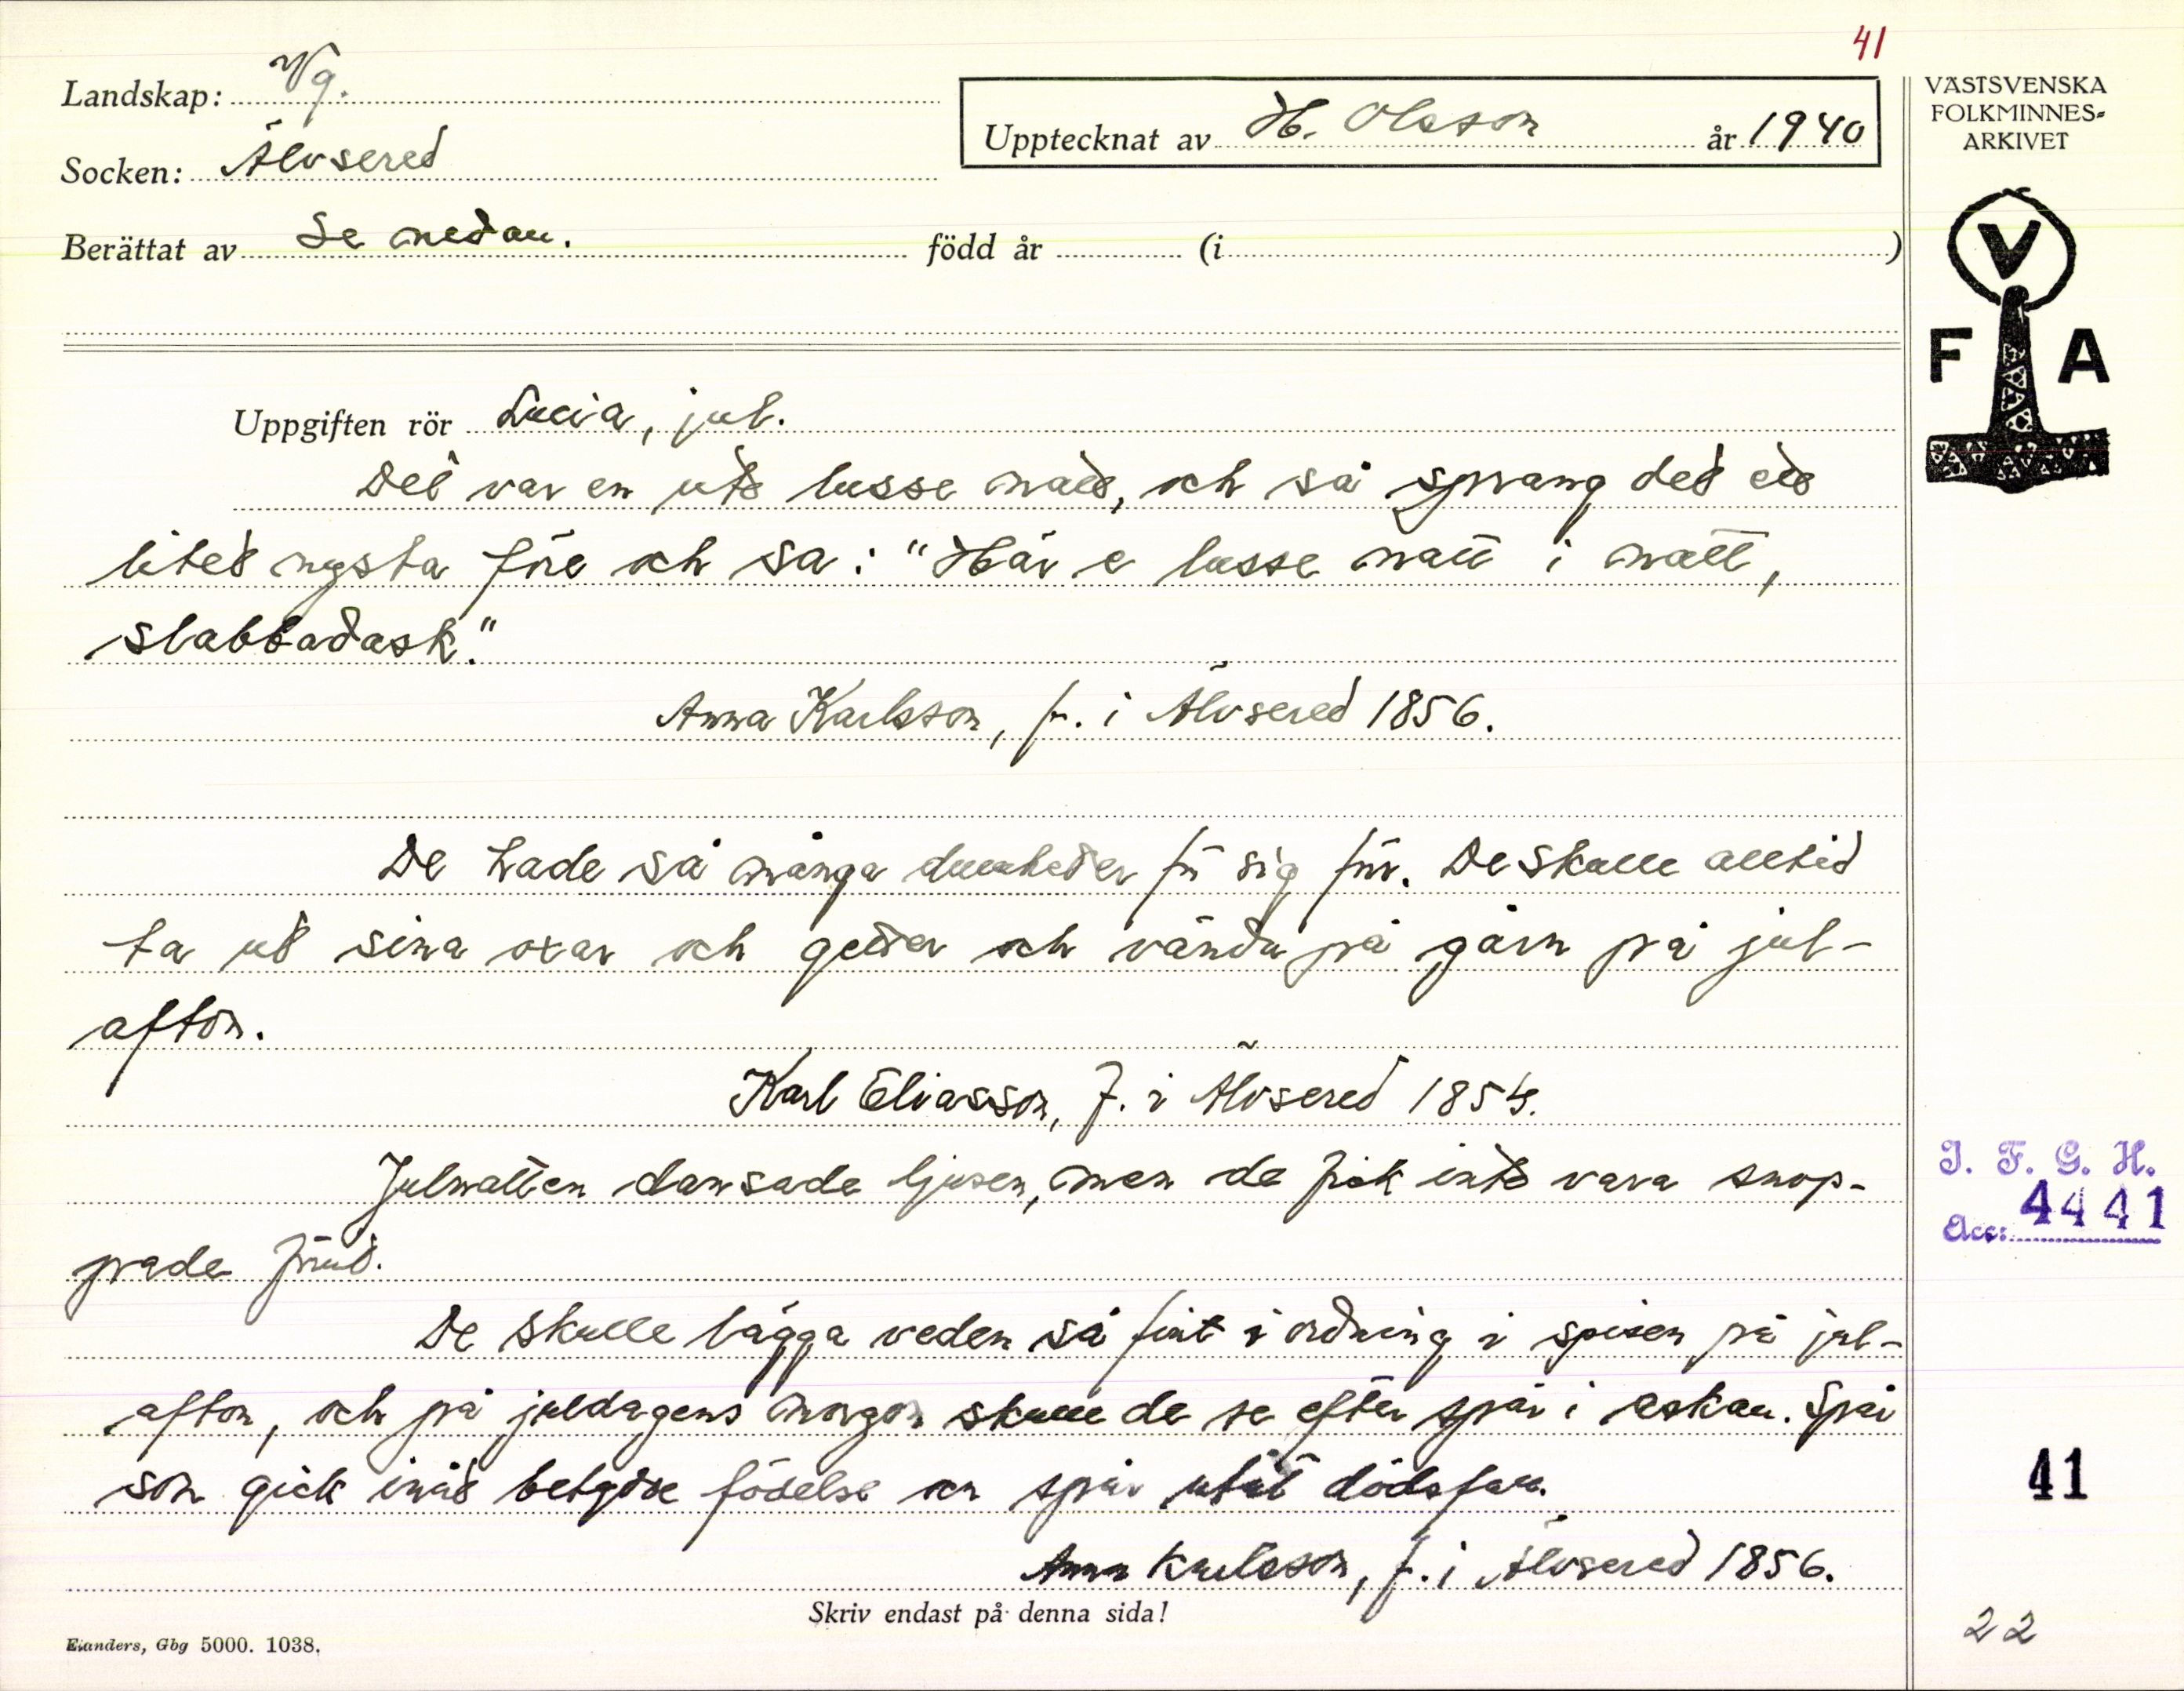 41
Landskap: Vg.
VÄSTSVENSKA
FOLKMINNES-
ARKIVET
Upptecknat av H. Olsson år 1940
Socken: Älvsered
Berättat av Se nedan. född år (i )
V
F A
Uppgiften rör Lucia, jul.
Det var en ute lusse natt, och så sprang det ett
litet nysta före och sa: "Här e lusse natt i natt,
slabbadask."
Anna Karlsson, f. i Älvsered 1856.
De hade så många dumheder för sig förr. De skulle alltid
ta ut sina oxar och geder och vända på gårn på jul-
afton.
Karl Eliasson, f. i Älvsered 1854.
Julnatten dansade ljusen, men de fick inte vara snop-
pade förut.
I. F. G. H.
Acc: 4441
De skulle lägga veden så fint i ordning i spisen på jul-
afton, och på juldagens morgon skulle de se efter spår i askan. Spår
som gick inåt betydde födelse och spår utåt dödsfall.
41
Anna Karlsson, f. i Älvsered 1856.
Skriv endast på denna sida!
22
Elanders, Gbg 5000. 1038.